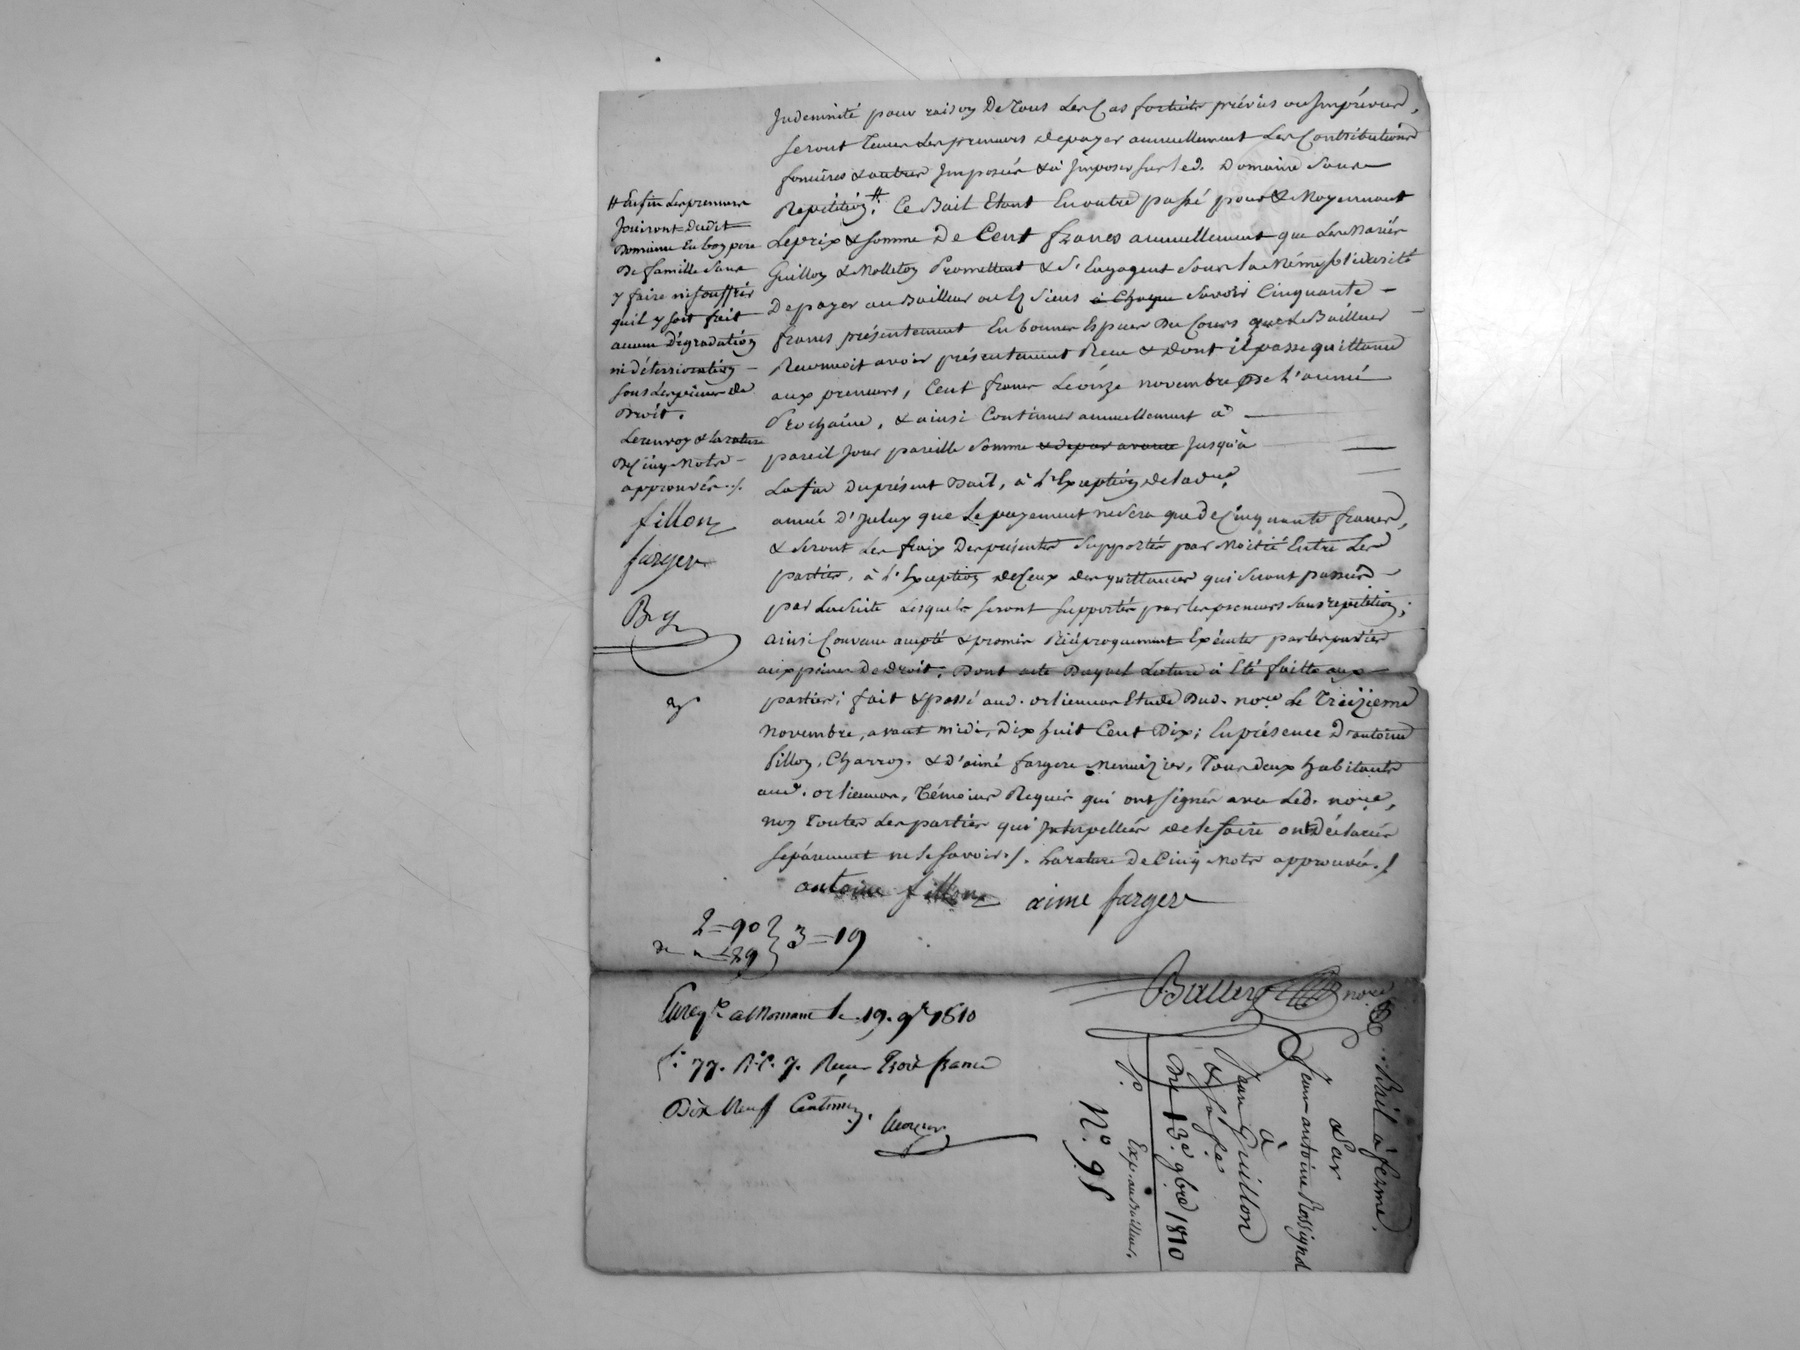 Indemnité pour raison De Tous Les Cas fortuits prévus ou Imprévus,
seront Tenus Les preneurs de payer annuellement Les Contributions
foncières & autres Imposées & à Imposer sur led. Domaine Sans
Repétition; # Ce Bail Etant En outre passé pour & Moyennant
Le prix & somme De Cent francs annuellement que Les Mariés
Guillon & Molleton Promettent & s'Engagent sous la Même solidarité
De payer au Bailleur ou Ez Siens à Chaque savoir Cinquante
francs présentement En bonnes Espèces Du Cours que Le Bailleur
Reconnoit avoir présentement Reçu & Dont il passe quittance
aux preneurs, Cent francs Le onze novembre De L'année
Prochaine, & ainsi Continuer annuellement à
pareil Jour pareille Somme & depar avance Jusqu'à
La fin Du présent Bail, à L'Exception de la due
année D'Iceluy que Le payement ne sera que De Cinquante francs,
& seront Les fraix Des présentes Supportés par Moitié Entre Les
parties, à L'Exception de Ceux des quittances qui seront passées
par La suite Lesquels seront supportés par les preneurs sans repétition;
ainsi Convenu accepté & promis Réciproquement Exécuter par les parties
aux peines De droit, Dont acte Duquel Lecture à Eté faitte aux
parties; fait & passé aud. orlienas Etude Dud. nore Le Treizieme
Novembre, avant midi, Dix huit Cent Dix; En présence D'antoine
fillon, Charron, & d'aimé fargere Menuizier, Tous deux habitants
aud. orlienas, Témoins Requis qui ont signés avec Led. nore,
non Toutes Les parties qui Interpellées de le faire ont déclarées
séparement ne le savoir ./. La rature De Cinq Mots approuvée ./.
# Enfin Les preneurs
Jouiront dudit
Domaine En bon pere
De famille Sans
y faire ni souffrir
quil y soit fait
aucune dégradation
ni détérrioration
sous Les peines de
Droit.
Le renvoy & la rature
De Cinq Mots
approuvés ./.
fillon
farger
antoine fillon aime farger
2=90 } 3=19
de =29
Buller nore
Enregré a Mornant le 19. 9re 1810
fo. 77. Ro. C. 7. Reçu Trois francs
Dix Neuf Centimes.
Bail à ferme.
Par
Jean antoine Rossignol
à
Jean Guillon
& sa fe
Du 13e 9bre 1810
Exp. au Bailleur.
No. 95